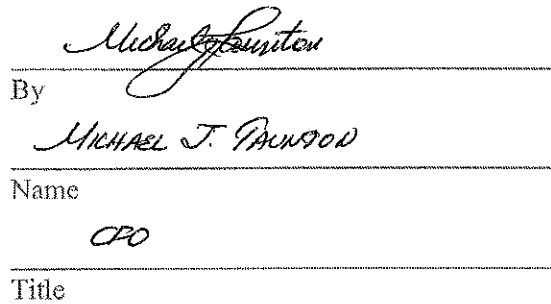 Michael J Taunton
By
MICHAEL J. TAUNTON
Name
Title